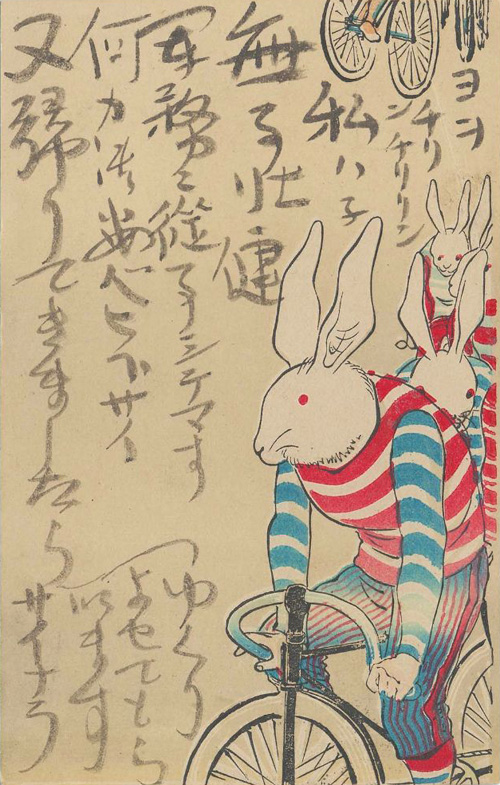 チリ
ンチリリン
私ハ子
無事壮健
軍務ニ從事シテマす
何カ御安心ヒ下サイ
又帰りてきましたら
ゆくり
よせてもら
います
サイナラ